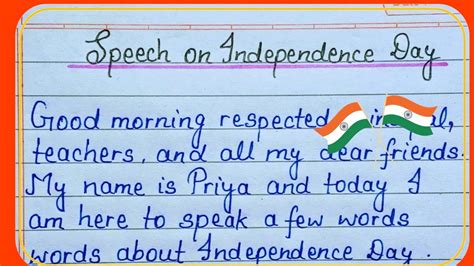 Speech on Independence Day
Good morning respected
teachers, and all my dear friends.
My name is Priya and today I
am here to speak a few words
words about Independence Day.